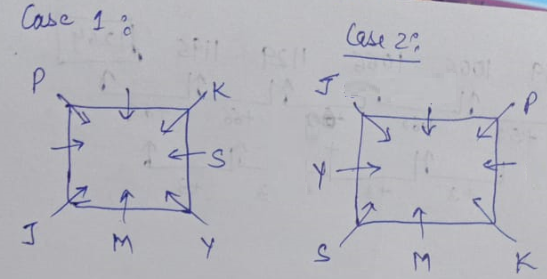 Case 1:
Case 2:
P K
J P
S
Y
J M Y
S M K